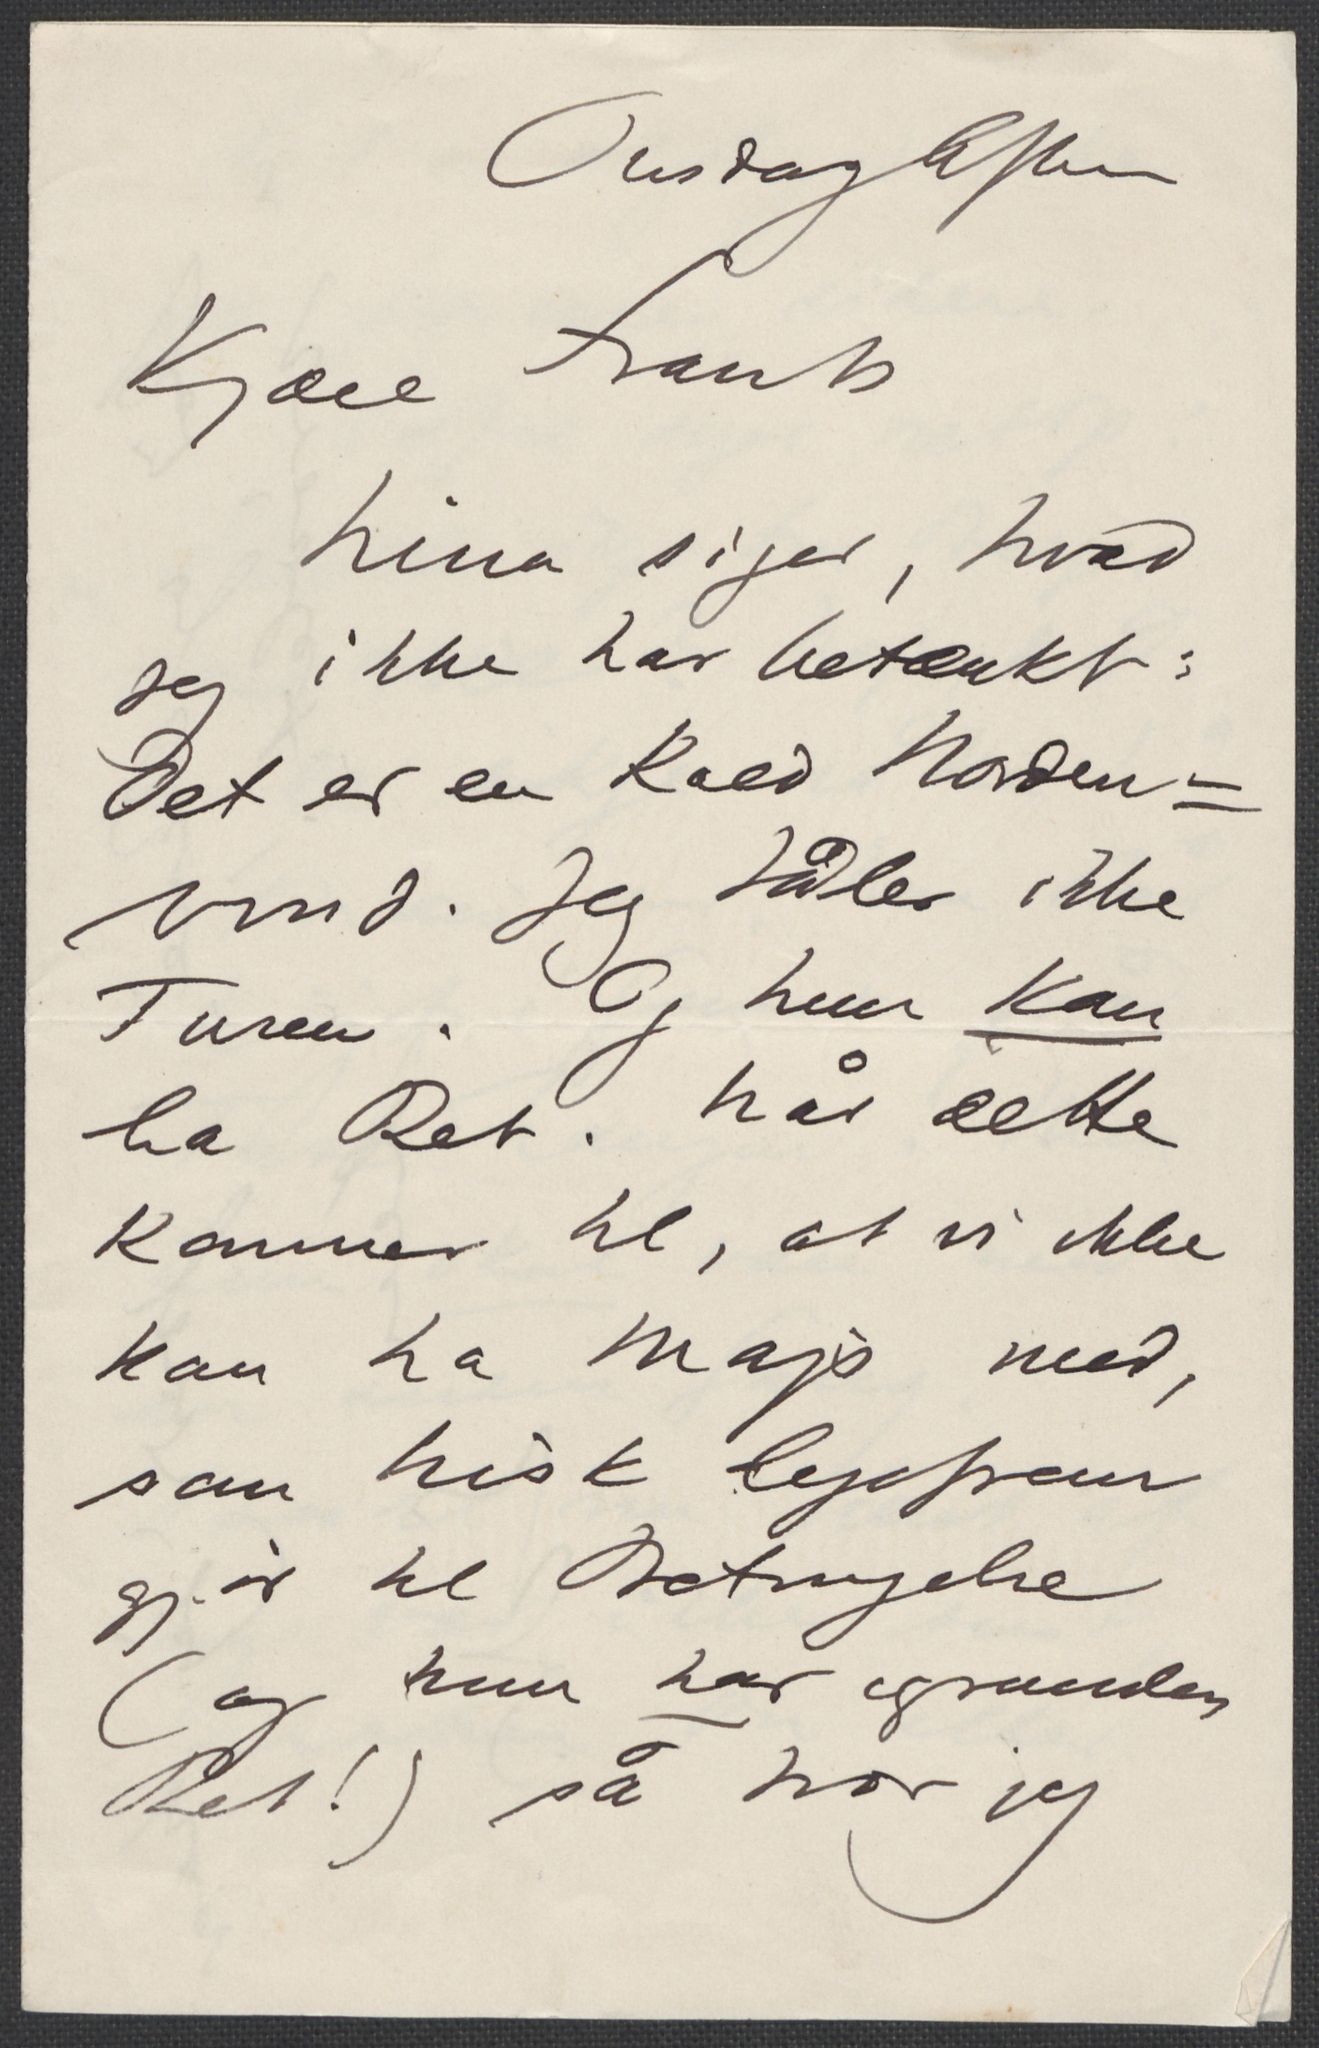 Onsdag Aften
Kjære Frants
Nina siger, hvad
jeg ikke har betænkt:
Det er en kold Norden=
vind. Jeg tåler ikke
Turen. Og hun kan
ha Ret. Når dette
kommer til, at vi ikke
kan ha Majs med,
som Nisk ligefrem
gjør til Betingelse
(og hun har igrunden
Ret!) så tror jeg